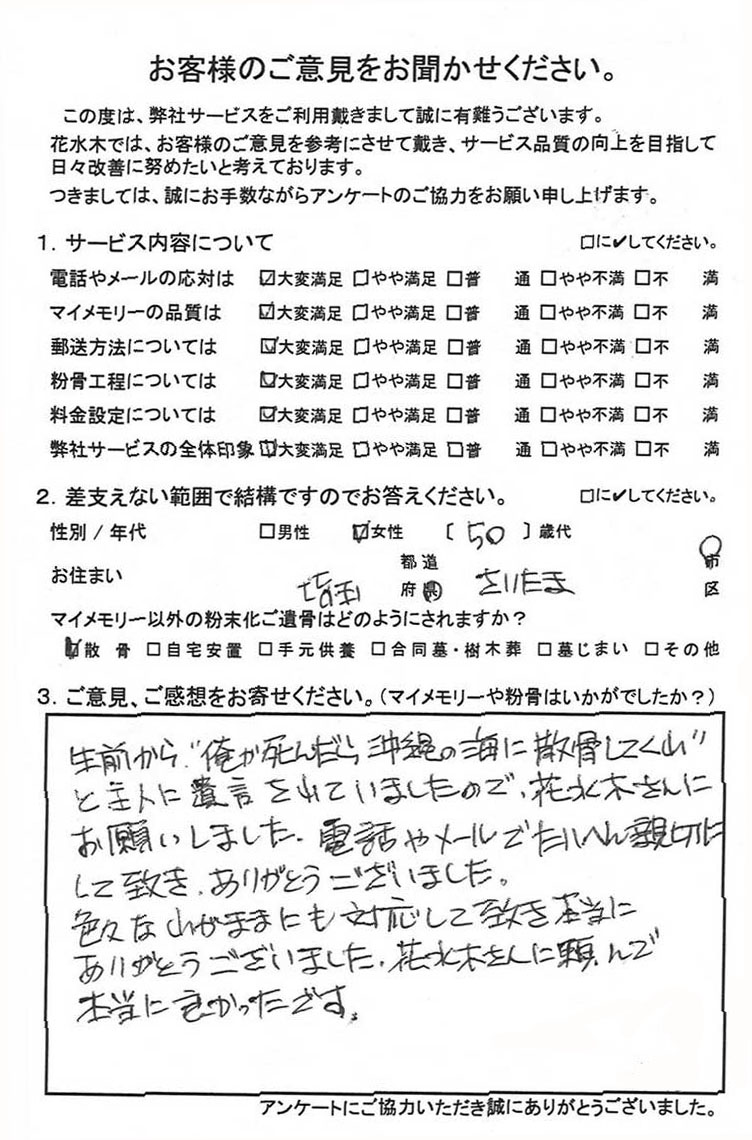 お客様のご意見をお聞かせください。
この度は、弊社サービスをご利用戴きまして誠に有難うございます。
花水木では、お客様のご意見を参考にさせて戴き、サービス品質の向上を目指して
日々改善に努めたいと考えております。
つきましては、誠にお手数ながらアンケートのご協力をお願い申し上げます。
1. サービス内容について □に✔してください。
電話やメールの応対は ☑大変満足 □やや満足 □普 通 □やや不満 □不 満
マイメモリーの品質は ☑大変満足 □やや満足 □普 通 □やや不満 □不 満
郵送方法については ☑大変満足 □やや満足 □普 通 □やや不満 □不 満
粉骨工程については ☑大変満足 □やや満足 □普 通 □やや不満 □不 満
料金設定については ☑大変満足 □やや満足 □普 通 □やや不満 □不 満
弊社サービスの全体印象 ☑大変満足 □やや満足 □普 通 □やや不満 □不 満
2. 差支えない範囲で結構ですのでお答えください。 □に✔してください。
性別 / 年代 □男性 ☑女性 〔 50 〕歳代
お住まい 埼玉 都道府県 さいたま 市区
マイメモリー以外の粉末化ご遺骨はどのようにされますか？
☑散 骨 □自宅安置 □手元供養 □合同墓・樹木葬 □墓じまい □その他
3. ご意見、ご感想をお寄せください。（マイメモリーや粉骨はいかがでしたか？）
生前から、"俺が死んだら沖縄の海に散骨してくれ"
と主人に遺言をされていましたので、花水木さんに
お願いしました。電話やメールでたいへん親切に
して致き、ありがとうございました。
色々なわがままにも対応して致き本当に
ありがとうございました。花水木さんに頼んで
本当に良かったです。
アンケートにご協力いただき誠にありがとうございました。